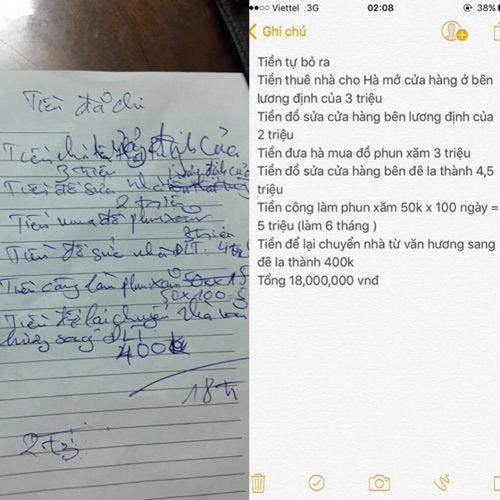 Tiền đã chi
Tiền nhà định Của
3 triệu
Tiền đồ sửa nhà định của
2 triệu
Tiền mua đồ phun xăm
3 triệu
Tiền đồ sửa nhà ĐLT. 4
Tiền công làm phun xăm
50x100=5
Tiền để lại chuyển nhà văn
hương sang ĐLT
400k
18 tr
Viettel 3G 02:08 38%
Ghi chú
Tiền tự bỏ ra
Tiền thuê nhà cho Hà mở cửa hàng ở bên
lương định của 3 triệu
Tiền đồ sửa cửa hàng bên lương định của
2 triệu
Tiền đưa hà mua đồ phun xăm 3 triệu
Tiền đồ sửa cửa hàng bên đê la thành 4,5
triệu
Tiền công làm phun xăm 50k x 100 ngày =
5 triệu (làm 6 tháng )
Tiền để lại chuyển nhà từ văn hương sang
đê la thành 400k
Tổng 18,000,000 vnđ